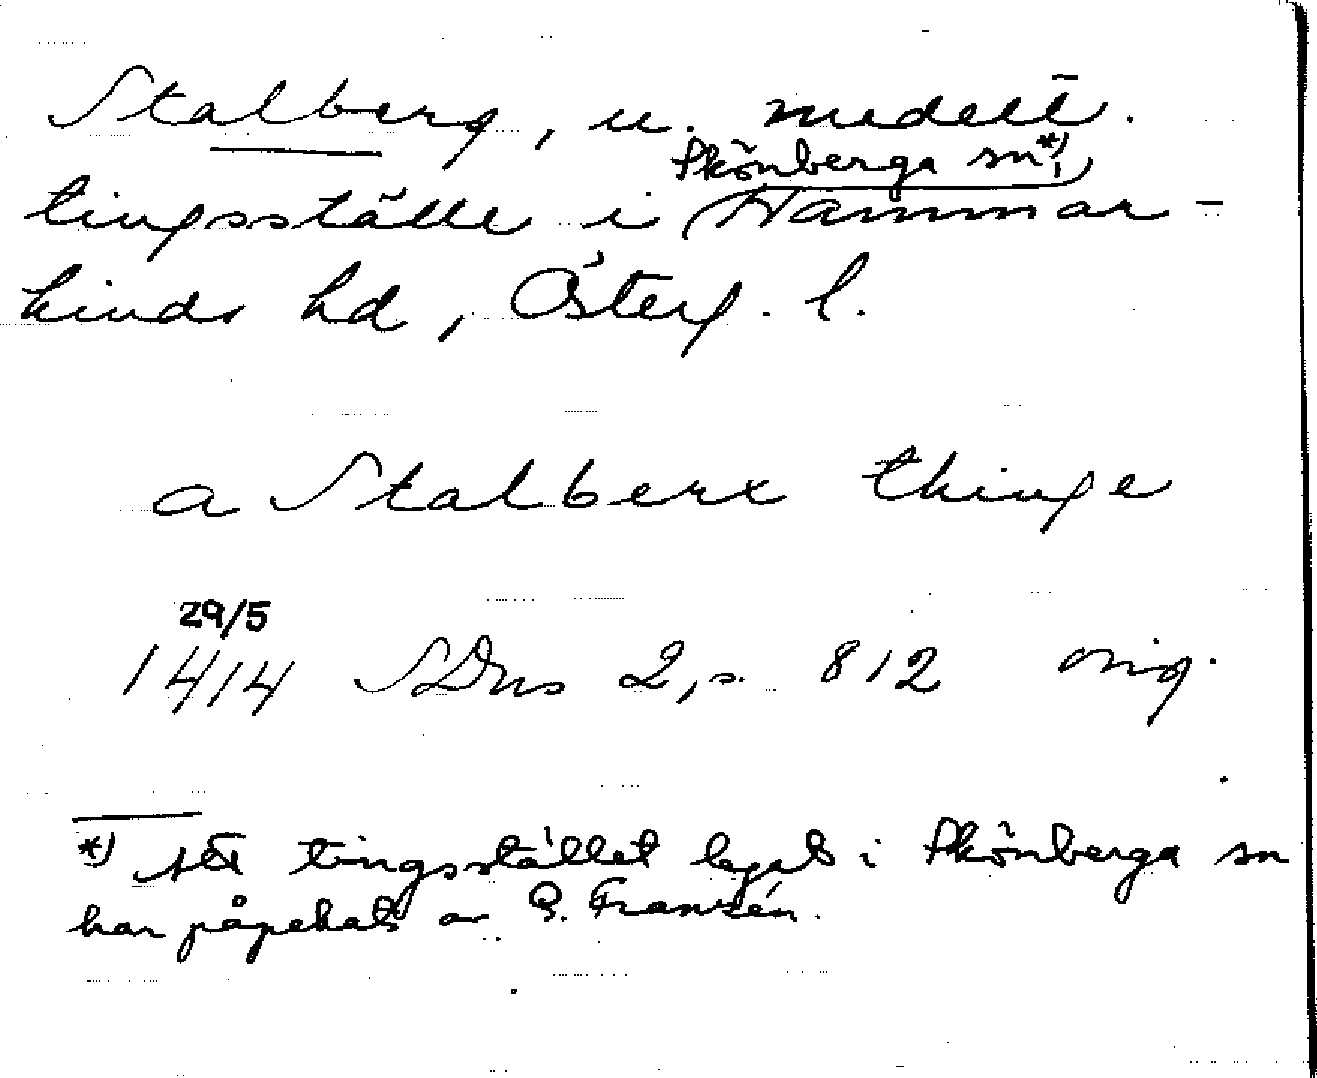 Stalberg, u. medelt.
Skönberga sn*),
tingsställe i Hammar-
kinds hd, Österg. l.
a Stalberx thinge
29/5
1414 SDns 2, s. 812 orig.
*) Att tingsstället legat i Skönberga sn
har påpekats av G. Franzén.